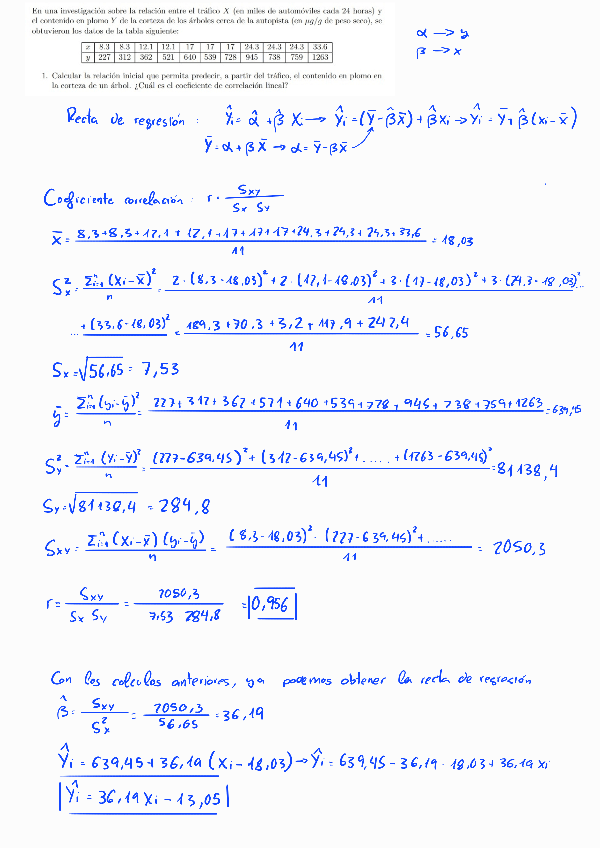 En una investigación sobre la relación entre el tráfico X (en miles de automóviles cada 24 horas) y
el contenido en plomo Y de la corteza de los árboles cerca de la autopista (en μg/g de peso seco), se
obtuvieron los datos de la tabla siguiente:
x 8.3 8.3 12.1 12.1 17 17 17 24.3 24.3 24.3 33.6
y 227 312 362 521 640 539 728 945 738 759 1263
1. Calcular la relación inicial que permita predecir, a partir del tráfico, el contenido en plomo en
la corteza de un árbol. ¿Cuál es el coeficiente de correlación lineal?
α → y
β → x
Recta de regresión: Ŷi = α̂ + β̂ Xi → Ŷi = (Ȳ - β̂X̄) + β̂Xi → Ŷi = Ȳ + β̂(xi - x̄)
Ȳ = α + βX̄ → α = Ȳ - βX̄
Coeficiente correlación: r = Sxy / Sx Sy
X̄ = 8,3+8,3+12,1+12,1+17+17+17+24,3+24,3+24,3+33,6 / 11 = 18,03
Sx² = Σi=1ⁿ (Xi - X̄)² / n = 2·(8,3-18,03)² + 2·(12,1-18,03)² + 3·(17-18,03)² + 3·(24,3-18,03)²... / 11
... + (33,6-18,03)² / 11 = 189,3+70,3+3,2+117,9+242,4 / 11 = 56,65
Sx = √56,65 = 7,53
ȳ = Σi=1ⁿ (yi - ȳ)² / n = 227+312+362+521+640+539+728+945+738+759+1263 / 11 = 639,45
Sy² = Σi=1ⁿ (Yi - Ȳ)² / n = (227-639,45)² + (312-639,45)² + ..... + (1263-639,45)² / 11 = 81138,4
Sy = √81138,4 = 284,8
Sxy = Σi=1ⁿ (Xi - x̄)(yi - ȳ) / n = (8,3-18,03)² · (227-639,45)² + ..... / 11 = 2050,3
r = Sxy / Sx Sy = 2050,3 / 7,53 284,8 = 0,956
Con los calculos anteriores, ya podemos obtener la recta de regresión
β̂ = Sxy / Sx² = 2050,3 / 56,65 = 36,19
Ŷi = 639,45 + 36,19 (Xi - 18,03) → Ŷi = 639,45 - 36,19 · 18,03 + 36,19 xi
Ŷi = 36,19 Xi - 13,05